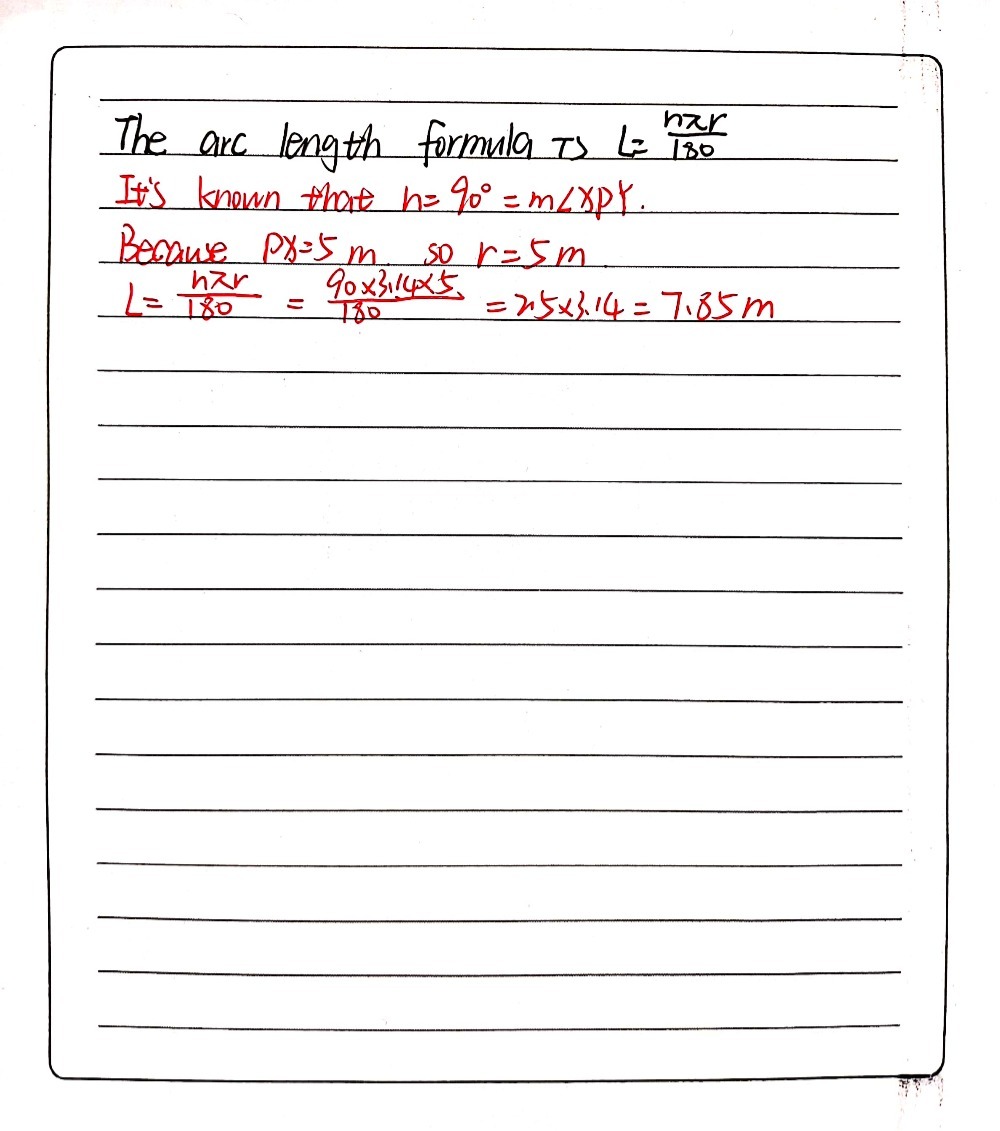 The arc length formula is L= nπr/180
It's known that n=90° =m∠XPY.
Because PX=5 m so r=5m
L= nπr/180 = 90×3.14×5/180 =2.5×3.14= 7.85m